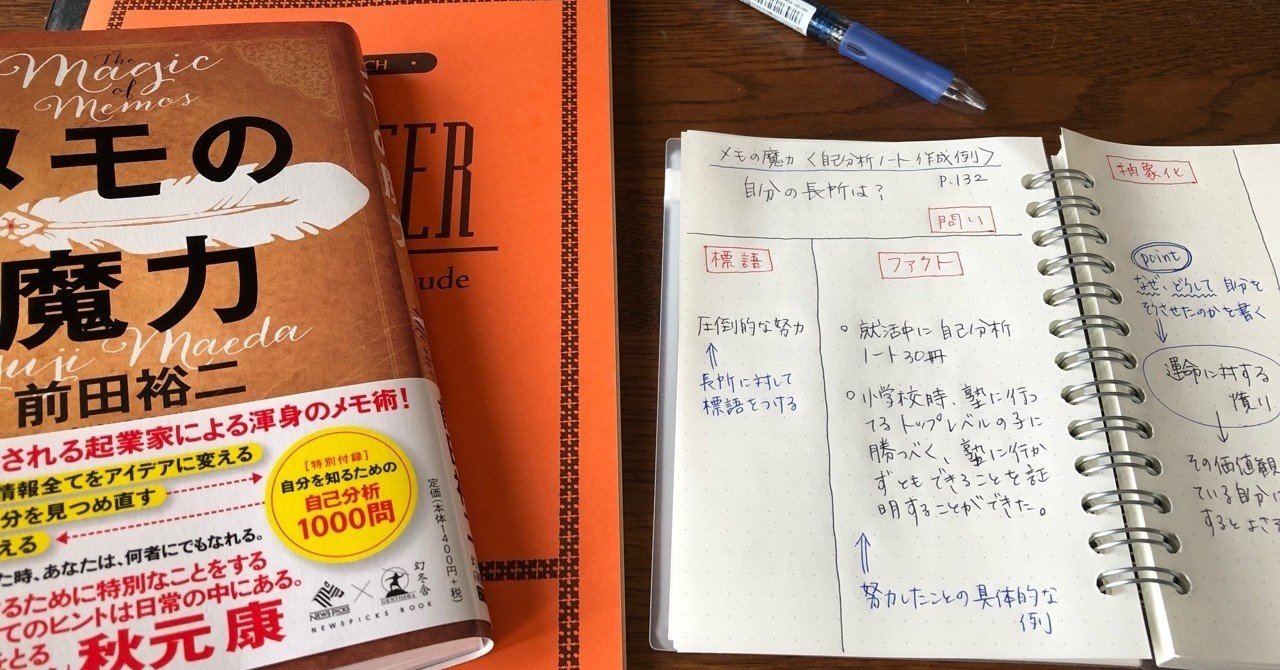 The
Magic
of
Memos
メモの
魔力
Yuji Maeda
前田裕二
される起業家による渾身のメモ術！
情報全てをアイデアに変える
分を見つめ直す
える
［特別付録］
自分を知るための
自己分析
1000問
定価(本体1400円+税)
た時、あなたは、何者にでもなれる。
るために特別なことをする
てのヒントは日常の中にある。
をとる
秋元 康
NEWS PICKS
×
GENTOSHA
幻冬舎
NEWSPICKS BOOK
CH
ER
ude
メモの魔力〈自己分析ノート作成例〉
P.132
自分の長所は?
問い
標語
圧倒的な努力
↑
長所に対して
標語をつける
ファクト
○ 就活中に自己分析
ノート30冊
○ 小学校時、塾に行っ
てるトップレベルの子に
勝つべく、塾に行か
ずともできることを証
明することができた。
↑
努力したことの具体的な
例
抽象化
point
なぜ、どうして自分を
そうさせたのかを書く
↓
運命に対する
憤り
↓
その価値観
ている自分に
するとよさそ